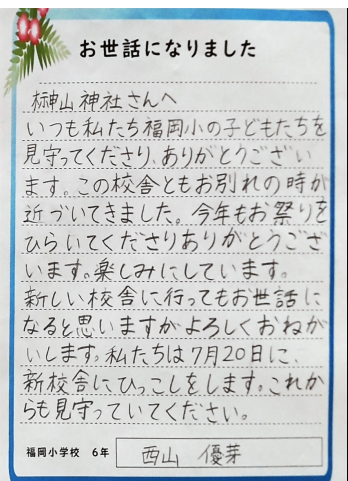 お世話になりました
榊山神社さんへ
いつも私たち福岡小の子どもたちを
見守ってくださり、ありがとうござい
ます。この校舎ともお別れの時が
近づいてきました。今年もお祭りを
ひらいてくださりありがとうござ
います。楽しみにしています。
新しい校舎に行ってもお世話に
なると思いますがよろしくおねが
いします。私たちは7月20日に、
新校舎にひっこしをします。これか
らも見守っていてください。
福岡小学校 6年 西山 優芽